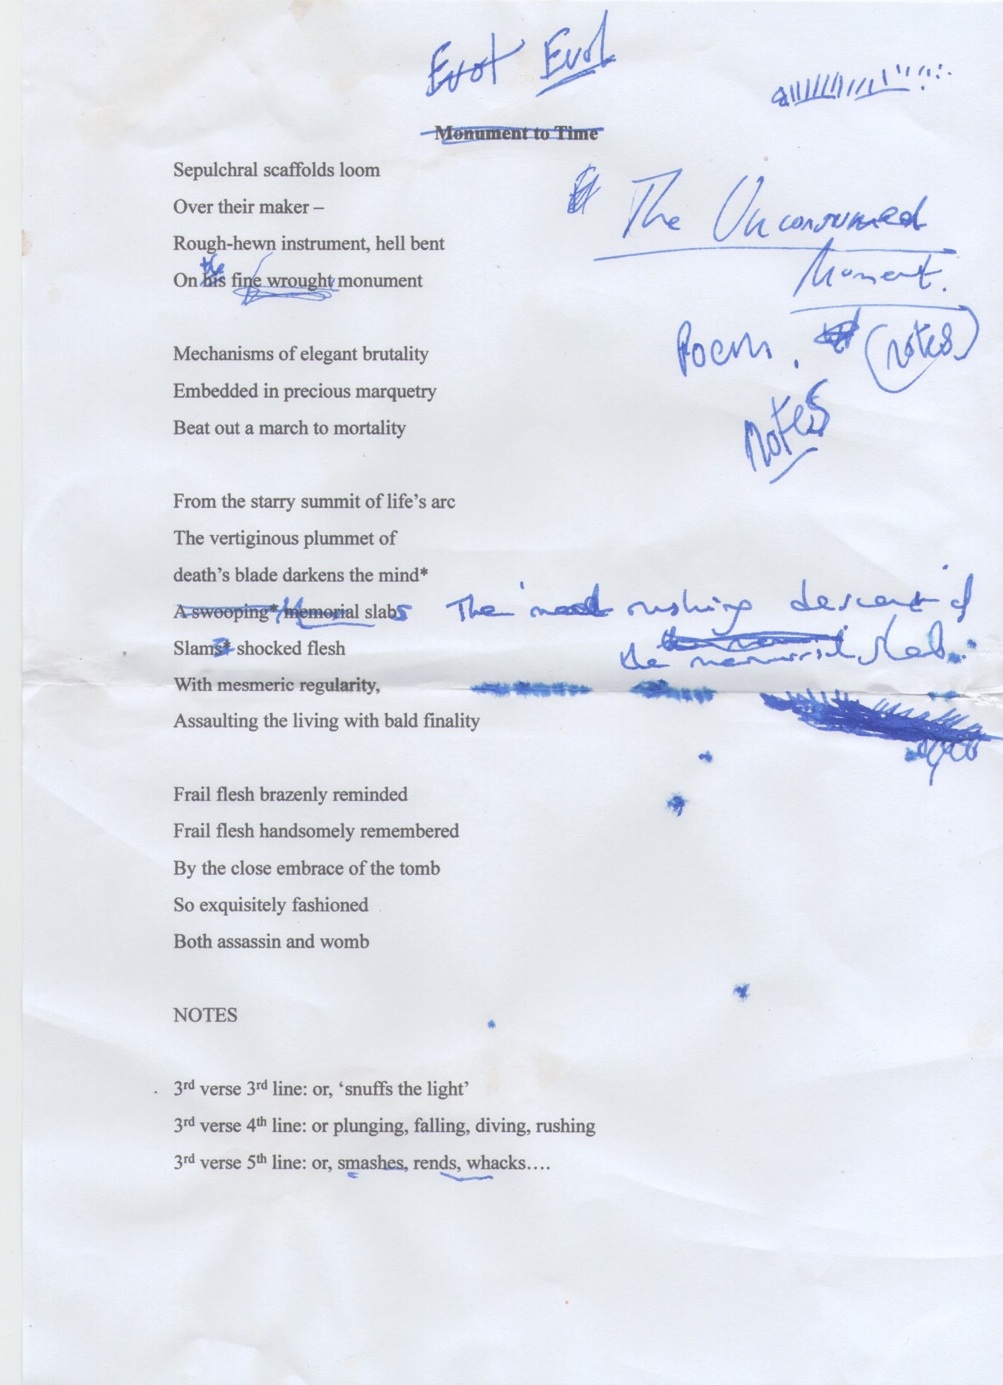 Evol Evol
Monument to Time
Sepulchral scaffolds loom
Over their maker –
The Unconsumed
Rough-hewn instrument, hell bent
the
On his fine wrought monument
Moment.
Poem. (notes)
Mechanisms of elegant brutality
Embedded in precious marquetry
Beat out a march to mortality
Notes
From the starry summit of life's arc
The vertiginous plummet of
death's blade darkens the mind*
A swooping* memorial slabs The rushing descent of
Slams* shocked flesh the memorial slab.
With mesmeric regularity,
Assaulting the living with bald finality
Frail flesh brazenly reminded
Frail flesh handsomely remembered
By the close embrace of the tomb
So exquisitely fashioned
Both assassin and womb
NOTES
3rd verse 3rd line: or, 'snuffs the light'
3rd verse 4th line: or plunging, falling, diving, rushing
3rd verse 5th line: or, smashes, rends, whacks….